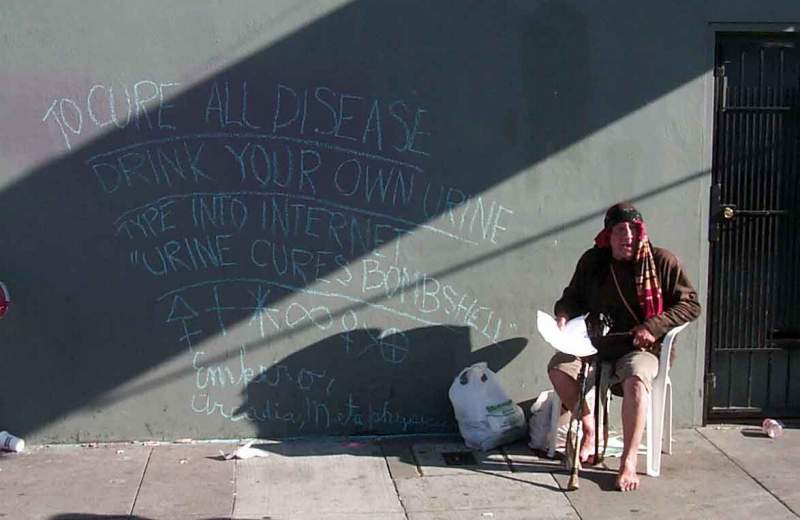 TO CURE ALL DISEASE
DRINK YOUR OWN URINE
TYPE INTO INTERNET
"URINE CURES BOMBSHELL"
Emperor,
Arcadia, Metaphysic